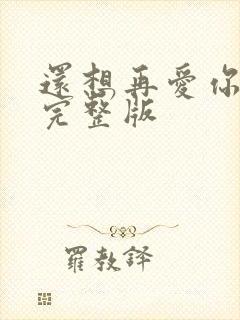 還想再愛你
完整版
羅敎譯